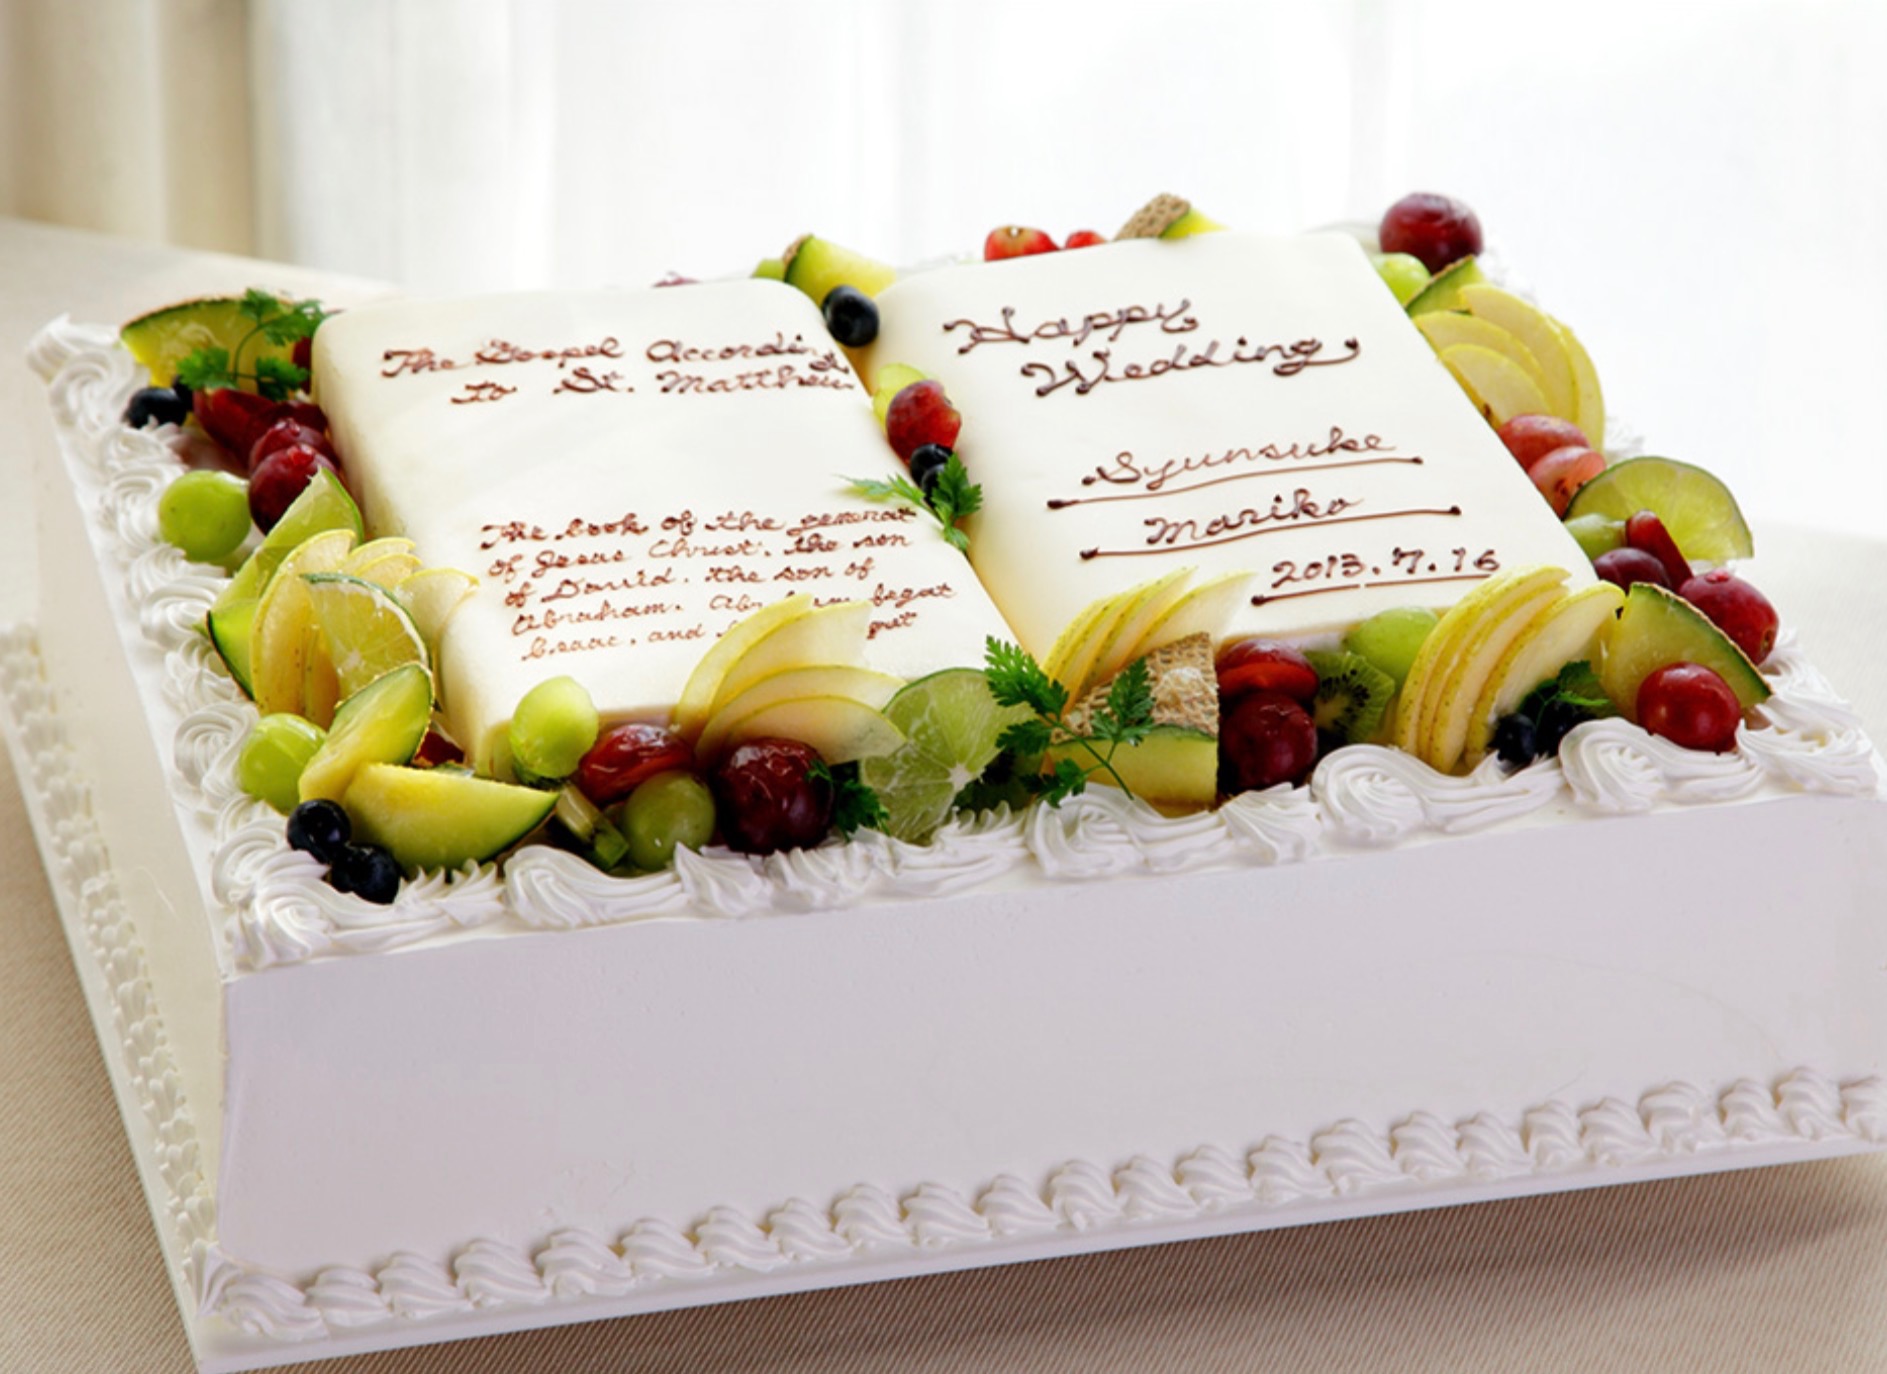 The Gospel According
to St. Matthew
The book of the generat
of Jesus Christ. the son
of David. the son of
Abraham. begat
Isaac. and
Happy
Wedding
Syunsuke
Mariko
2013.7.16